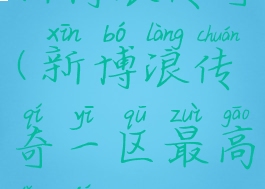 xīn bó làng chuán
(新博浪传
qí yī qū zuì gāo
奇一区最高